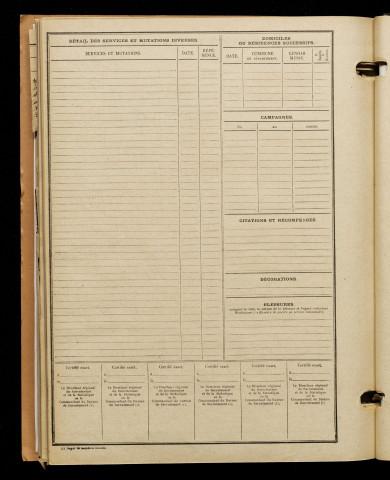 DÉTAIL DES SERVICES ET MUTATIONS DIVERSES.
SERVICES ET MUTATIONS.
DATE.
RÉFÉ-
RENCE.
DOMICILES
OU RÉSIDENCES SUCCESSIFS.
DATE.
COMMUNE
OU
GENDAR-
MERIE.
CAMPAGNES.
DU
AU
CITATIONS ET RÉCOMPENSES
DÉCORATIONS.
BLESSURES
Certifié exact,
Certifié exact,
Certifié exact,
Certifié exact,
Certifié exact,
Certifié exact,
A
A
A
A
A
A
Le Directeur régional
du Recrutement
et de la Statistique
ou le
Commandant du Bureau
de Recrutement (1),
Le Directeur régional
du Recrutement
et de la Statistique
ou le
Commandant du Bureau
de Recrutement (1),
Le Directeur régional
du Recrutement
et de la Statistique
ou le
Commandant du Bureau
de Recrutement (1),
Le Directeur régional
du Recrutement
et de la Statistique
ou le
Commandant du Bureau
de Recrutement (1),
Le Directeur régional
du Recrutement
et de la Statistique
ou le
Commandant du Bureau
de Recrutement (1),
Le Directeur régional
du Recrutement
et de la Statistique
ou le
Commandant du Bureau
de Recrutement (1),